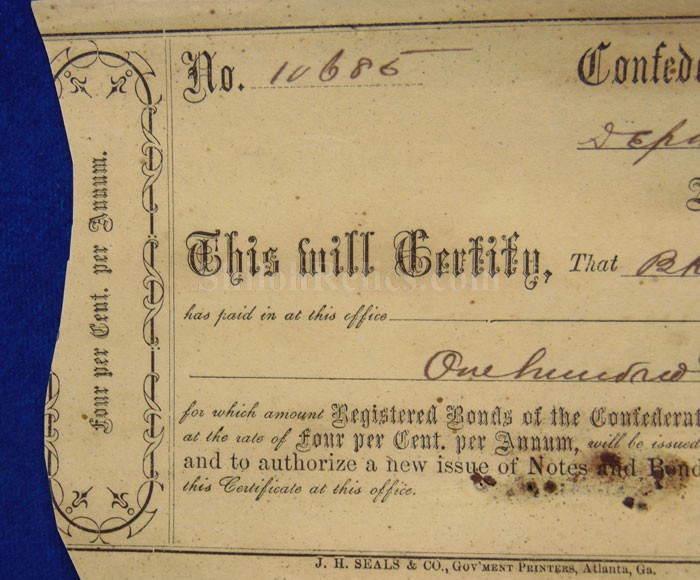 No. 10685
Confede
Depa
Four per Cent. per Annum.
This will Certify, That BR
SimonRelics.com
has paid in at this office
One hundred
for which amount Registered Bonds of the Confederat
at the rate of Four per Cent. per Annum, will be issued
and to authorize a new issue of Notes and Bond
this Certificate at this office.
J. H. SEALS & CO., GOV'MENT PRINTERS, Atlanta, Ga.